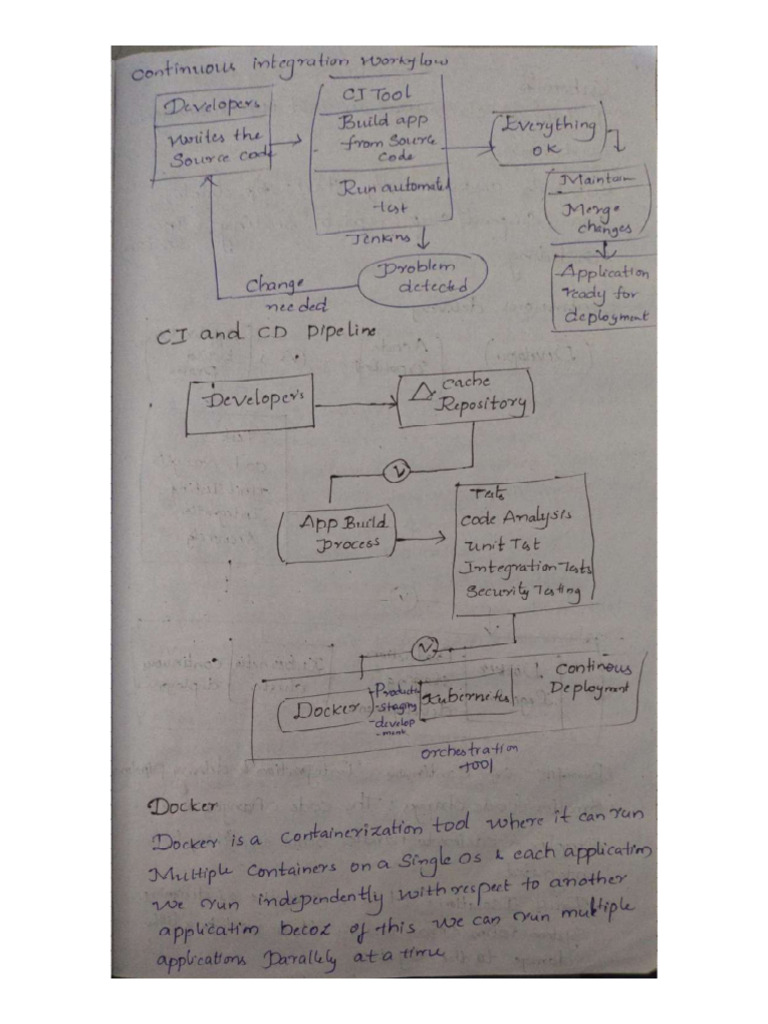 Continuous integration workflow
Developers
writes the
Source code
CI Tool
Build app
from Source
code
Run automated
test
Jenkins
Everything
OK
Maintain
Merge
changes
Application
ready for
deployment
Problem
detected
Change
needed
CI and CD pipeline
Developers
Cache
Repository
V
App Build
process
Tests
Code Analysis
Unit Test
Integration Tests
Security Testing
V
Docker
Producti
-staging
-develop
-ment
Kubernites
Continous
Deployment
orchestration
tool
Docker
Docker is a containerization tool where it can run
Multiple containers on a single OS & each application
we run independently with respect to another
application becoz of this we can run multiple
applications parallely at a time